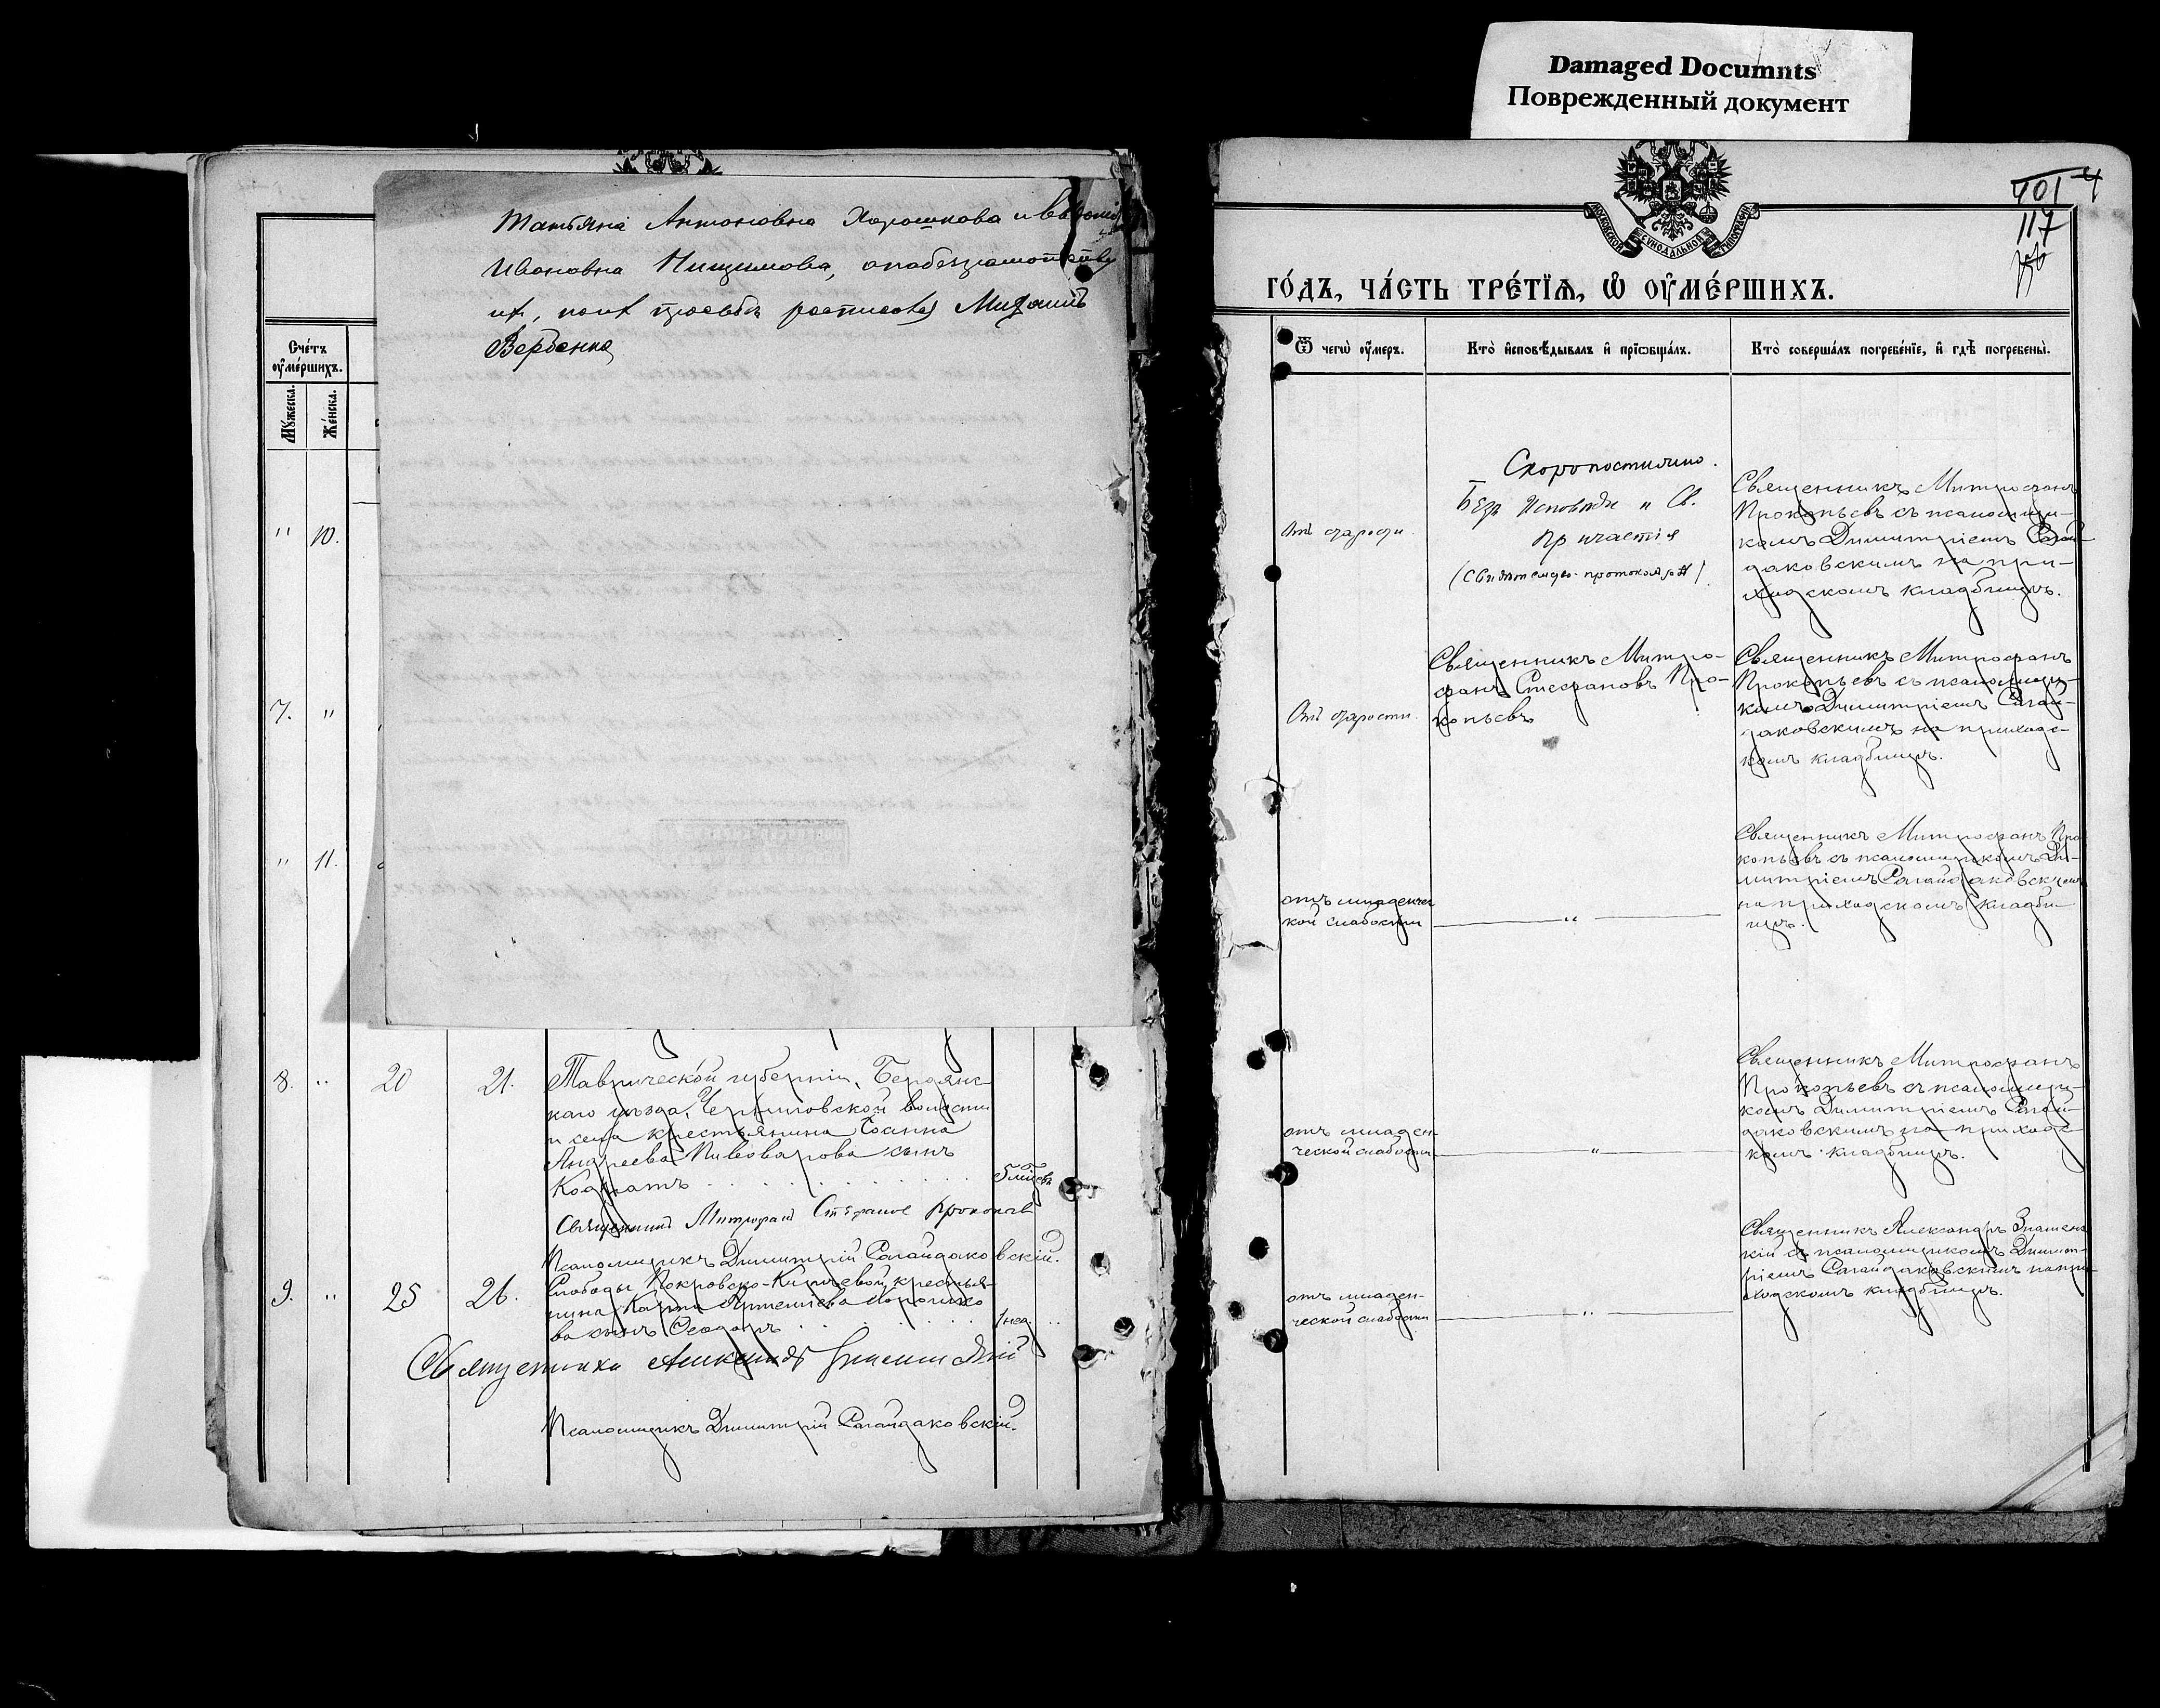 Damaged Documnts
Поврежденный документ
Татьяна Антоновна Хорошкова и
Ивановна, а по безграмотству
их, по их просьбе росписался Михаил
Вербенко
Счéтъ
оу҆мéршихъ.
Мꙋ́жеска.
Жéнска.
" 10.
7. "
" 11.
8. " 20 21. Таврической губерніи, Бердянс-
каго уѣзда, Черниговской волости
и села крестьянина Іоанна
Андреева Пивоварова сынъ
Кодратъ
5 мѣсяц
Священникъ Митрофанъ Стефановъ Прокопьевъ
Псаломщикъ Димитрій Сагайдаковскій.
9. " 25 26. Слободы Покровско-Киреевой крестья-
нина Карпа Артеміева Хорошко
ва сынъ Ѳеодоръ
1 нед. "
Священникъ Александръ Знаменскій
Псаломщикъ Димитрій Сагайдаковскій.
401
117
ГÓДЪ, ЧÁСТЬ ТРÉТЇѦ, Ѡ҆ ОУ҆МÉРШИХЪ.
МОСКОВСКОЙ СѴНОДАЛЬНОЙ ТИПОГРАФІИ
Ѿ чегѡ̀ оу҆́меръ.
Ктò и҆сповѣ́дывалъ и҆ прїѡбщáлъ.
Ктò совершáлъ погребéнїе, и҆ гдѣ̀ погребены̀.
Отъ старости
Скоропостижно.
Безъ Исповѣди и Св.
Причастія
Священникъ Митрофанъ
Прокопьевъ съ псаломщи-
комъ Димитріемъ Сагай-
даковскимъ на при-
ходскомъ кладбищѣ.
Отъ старости.
Священникъ Митро-
фанъ Стефановъ Про-
копьевъ
Священникъ Митрофанъ
Прокопьевъ съ псаломщи-
комъ Димитріемъ Сагай-
даковскимъ на приходс-
комъ кладбищѣ.
отъ младенчес
кой слабости
"
Священникъ Митрофанъ Про
копьевъ съ псаломщикомъ Ди-
митріемъ Сагайдаковскимъ
на приходскомъ кладби-
щѣ.
отъ младен-
ческой слабости
"
Священникъ Митрофанъ
Прокопьевъ съ псаломщи-
комъ Димитріемъ Сагай-
даковскимъ на приходс-
комъ кладбищѣ.
отъ младен-
ческой слабости
"
Священникъ Александръ Знаменс
кій съ псаломщикомъ Димит-
ріемъ Сагайдаковскимъ на при-
ходскомъ кладбищѣ.